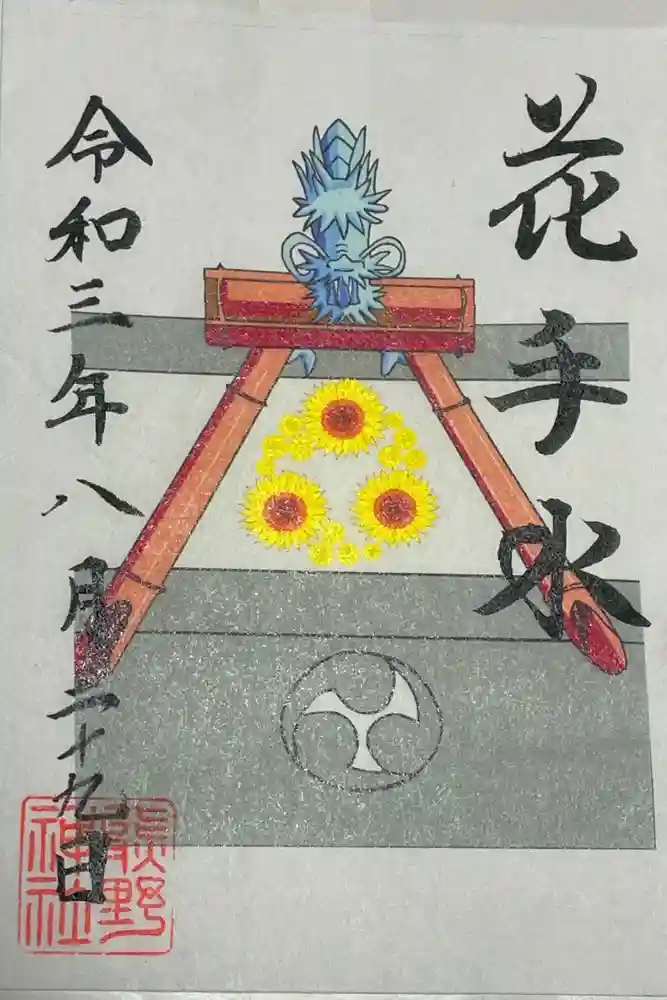 花手水
令和三年八月二十九日
熊野
神社